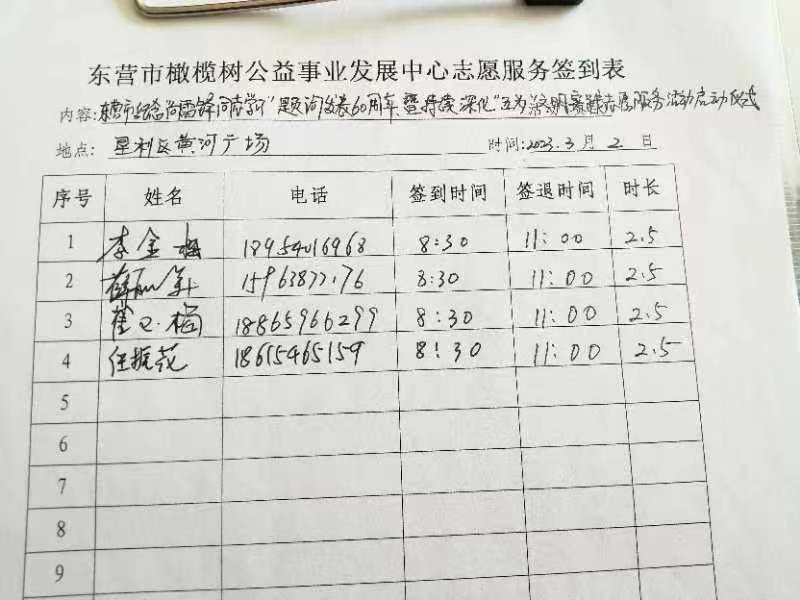 东营市橄榄树公益事业发展中心志愿服务签到表
内容:东营市纪念向雷锋同志学习"题词发表60周年暨持续深化"五为"文明实践志愿服务活动启动仪式
地点: 垦利区黄河广场 时间:2023.3月2日
序号 姓名 电话 签到时间 签退时间 时长
1 李金梅 18954016968 8:30 11:00 2.5
2 15963877176 8:30 11:00 2.5
3 崔 梅 18865966299 8:30 11:00 2.5
4 任振花 18615465159 8:30 11:00 2.5
5
6
7
8
9